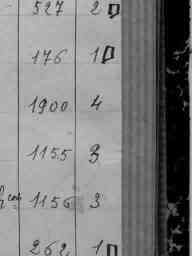 527 2
176 1
1900 4
1155 3
1156 3
262 1